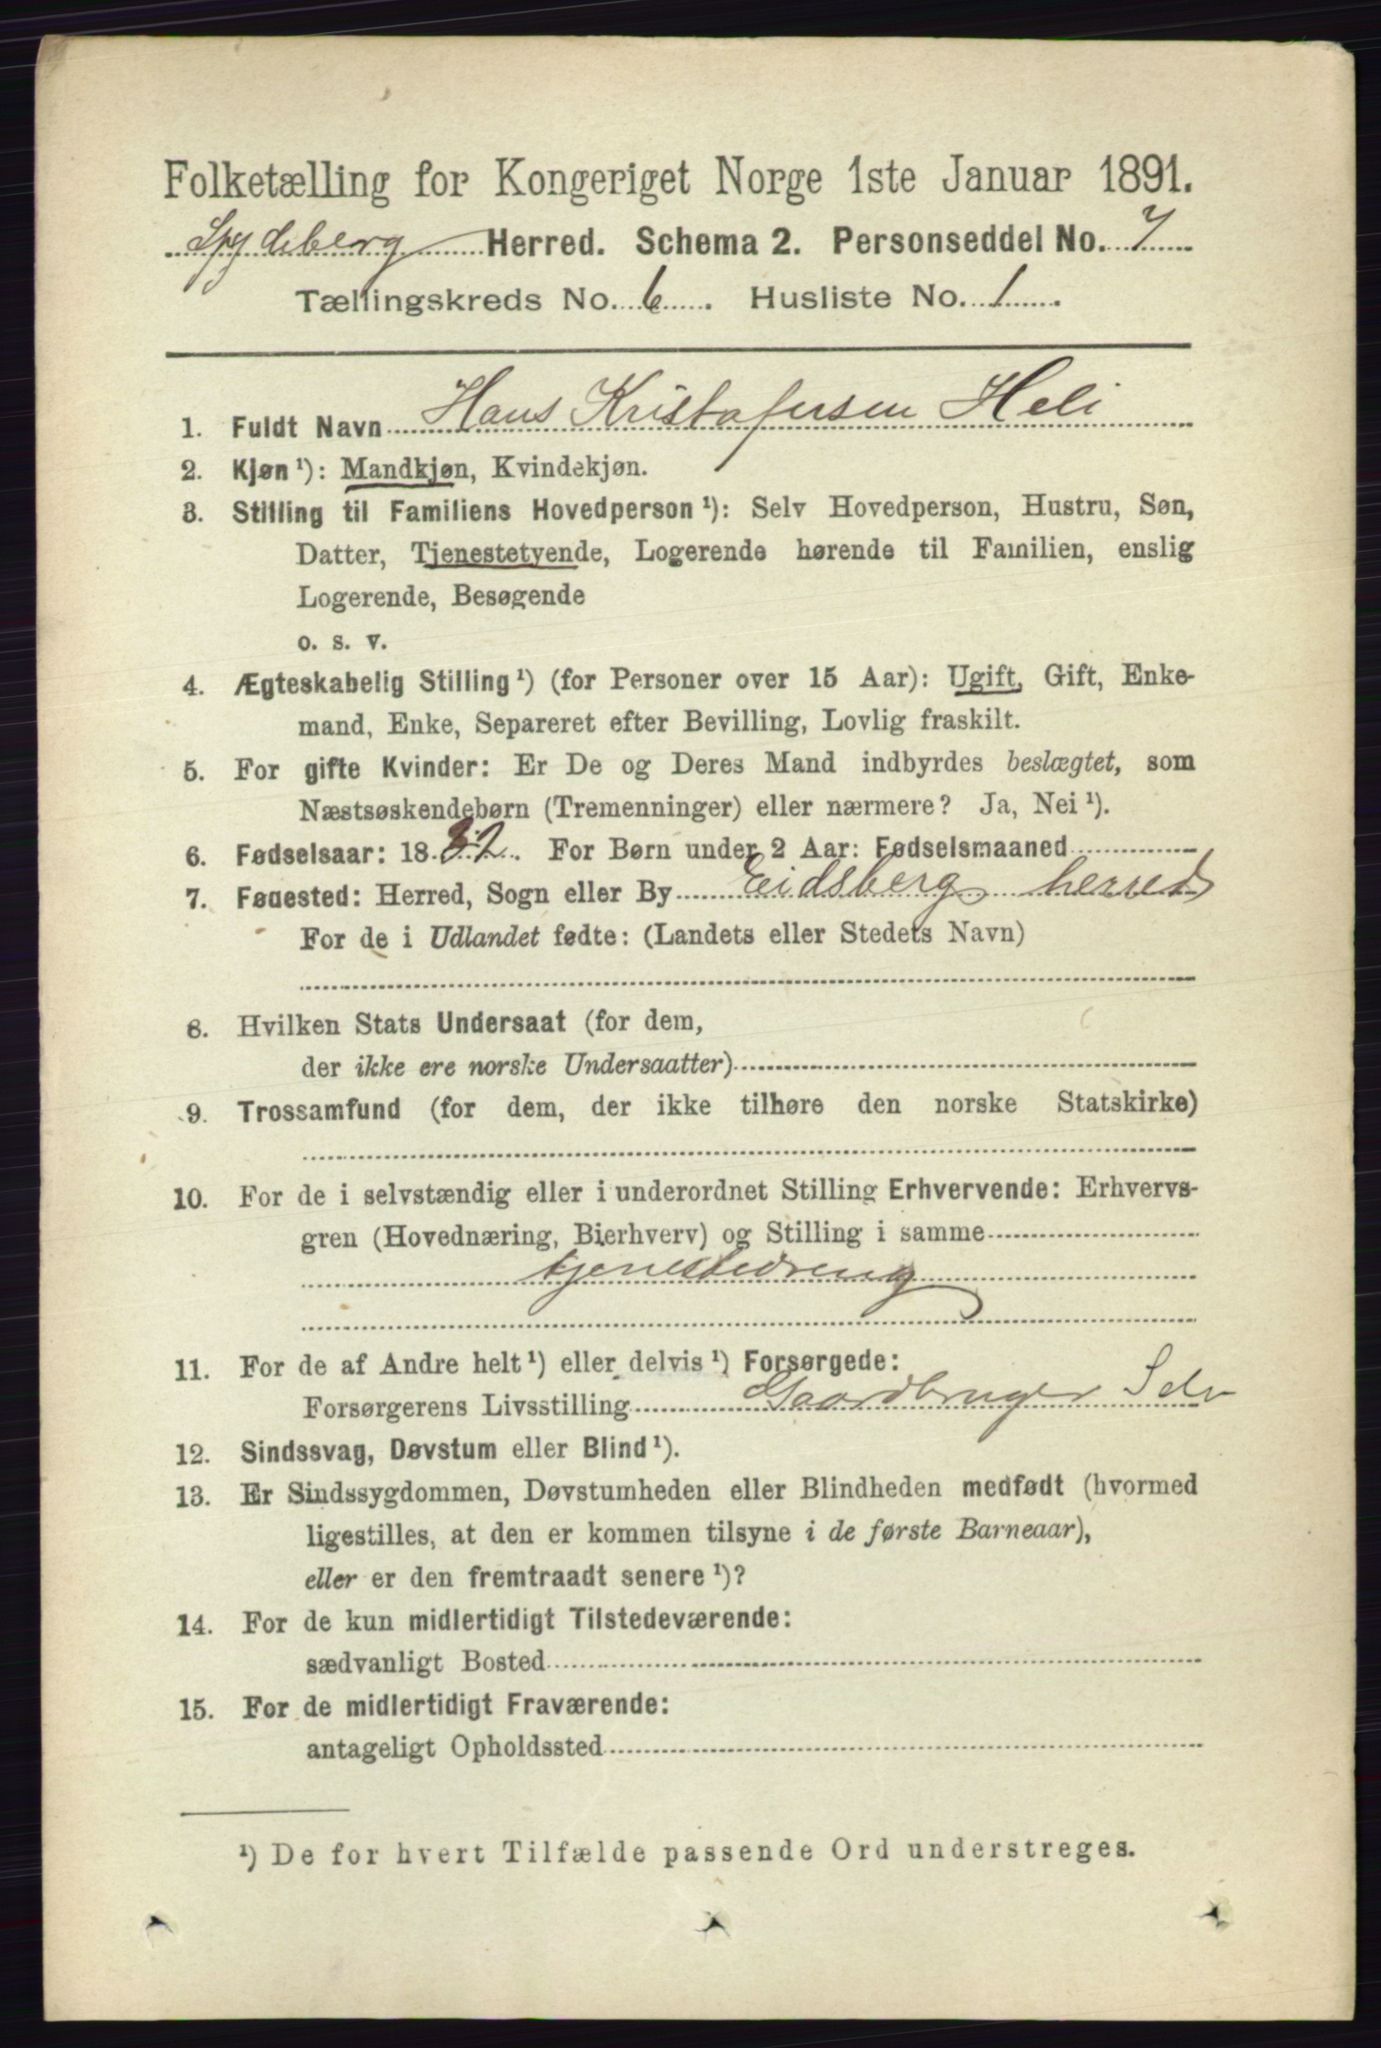 Folketælling for Kongeriget Norge 1ste Januar 1891.
Spydeberg Herred. Schema 2. Personseddel No. 7
Tællingskreds No. 6. Husliste No. 1.
1. Fuldt Navn Hans Kristofersen Heli
2. Kjøn ¹): Mandkjøn, Kvindekjøn.
3. Stilling til Familiens Hovedperson ¹): Selv Hovedperson, Hustru, Søn,
Datter, Tjenestetyende, Logerende hørende til Familien, enslig
Logerende, Besøgende
o. s. v.
4. Ægteskabelig Stilling ¹) (for Personer over 15 Aar): Ugift, Gift, Enke-
mand, Enke, Separeret efter Bevilling, Lovlig fraskilt.
5. For gifte Kvinder: Er De og Deres Mand indbyrdes beslægtet, som
Næstsøskendebørn (Tremenninger) eller nærmere? Ja, Nei ¹).
6. Fødselsaar: 1832. For Børn under 2 Aar: Fødselsmaaned
7. Fødested: Herred, Sogn eller By Eidsberg herred
For de i Udlandet fødte: (Landets eller Stedets Navn)
8. Hvilken Stats Undersaat (for dem,
der ikke ere norske Undersaatter)
9. Trossamfund (for dem, der ikke tilhøre den norske Statskirke)
10. For de i selvstændig eller i underordnet Stilling Erhvervende: Erhvervs-
gren (Hovednæring, Bierhverv) og Stilling i samme
tjenestedreng
11. For de af Andre helt ¹) eller delvis ¹) Forsørgede:
Forsørgerens Livsstilling Gaardbruger Selv
12. Sindssvag, Døvstum eller Blind ¹).
13. Er Sindssygdommen, Døvstumheden eller Blindheden medfødt (hvormed
ligestilles, at den er kommen tilsyne i de første Barneaar),
eller er den fremtraadt senere ¹)?
14. For de kun midlertidigt Tilstedeværende:
sædvanligt Bosted
15. For de midlertidigt Fraværende:
antageligt Opholdssted
¹) De for hvert Tilfælde passende Ord understreges.